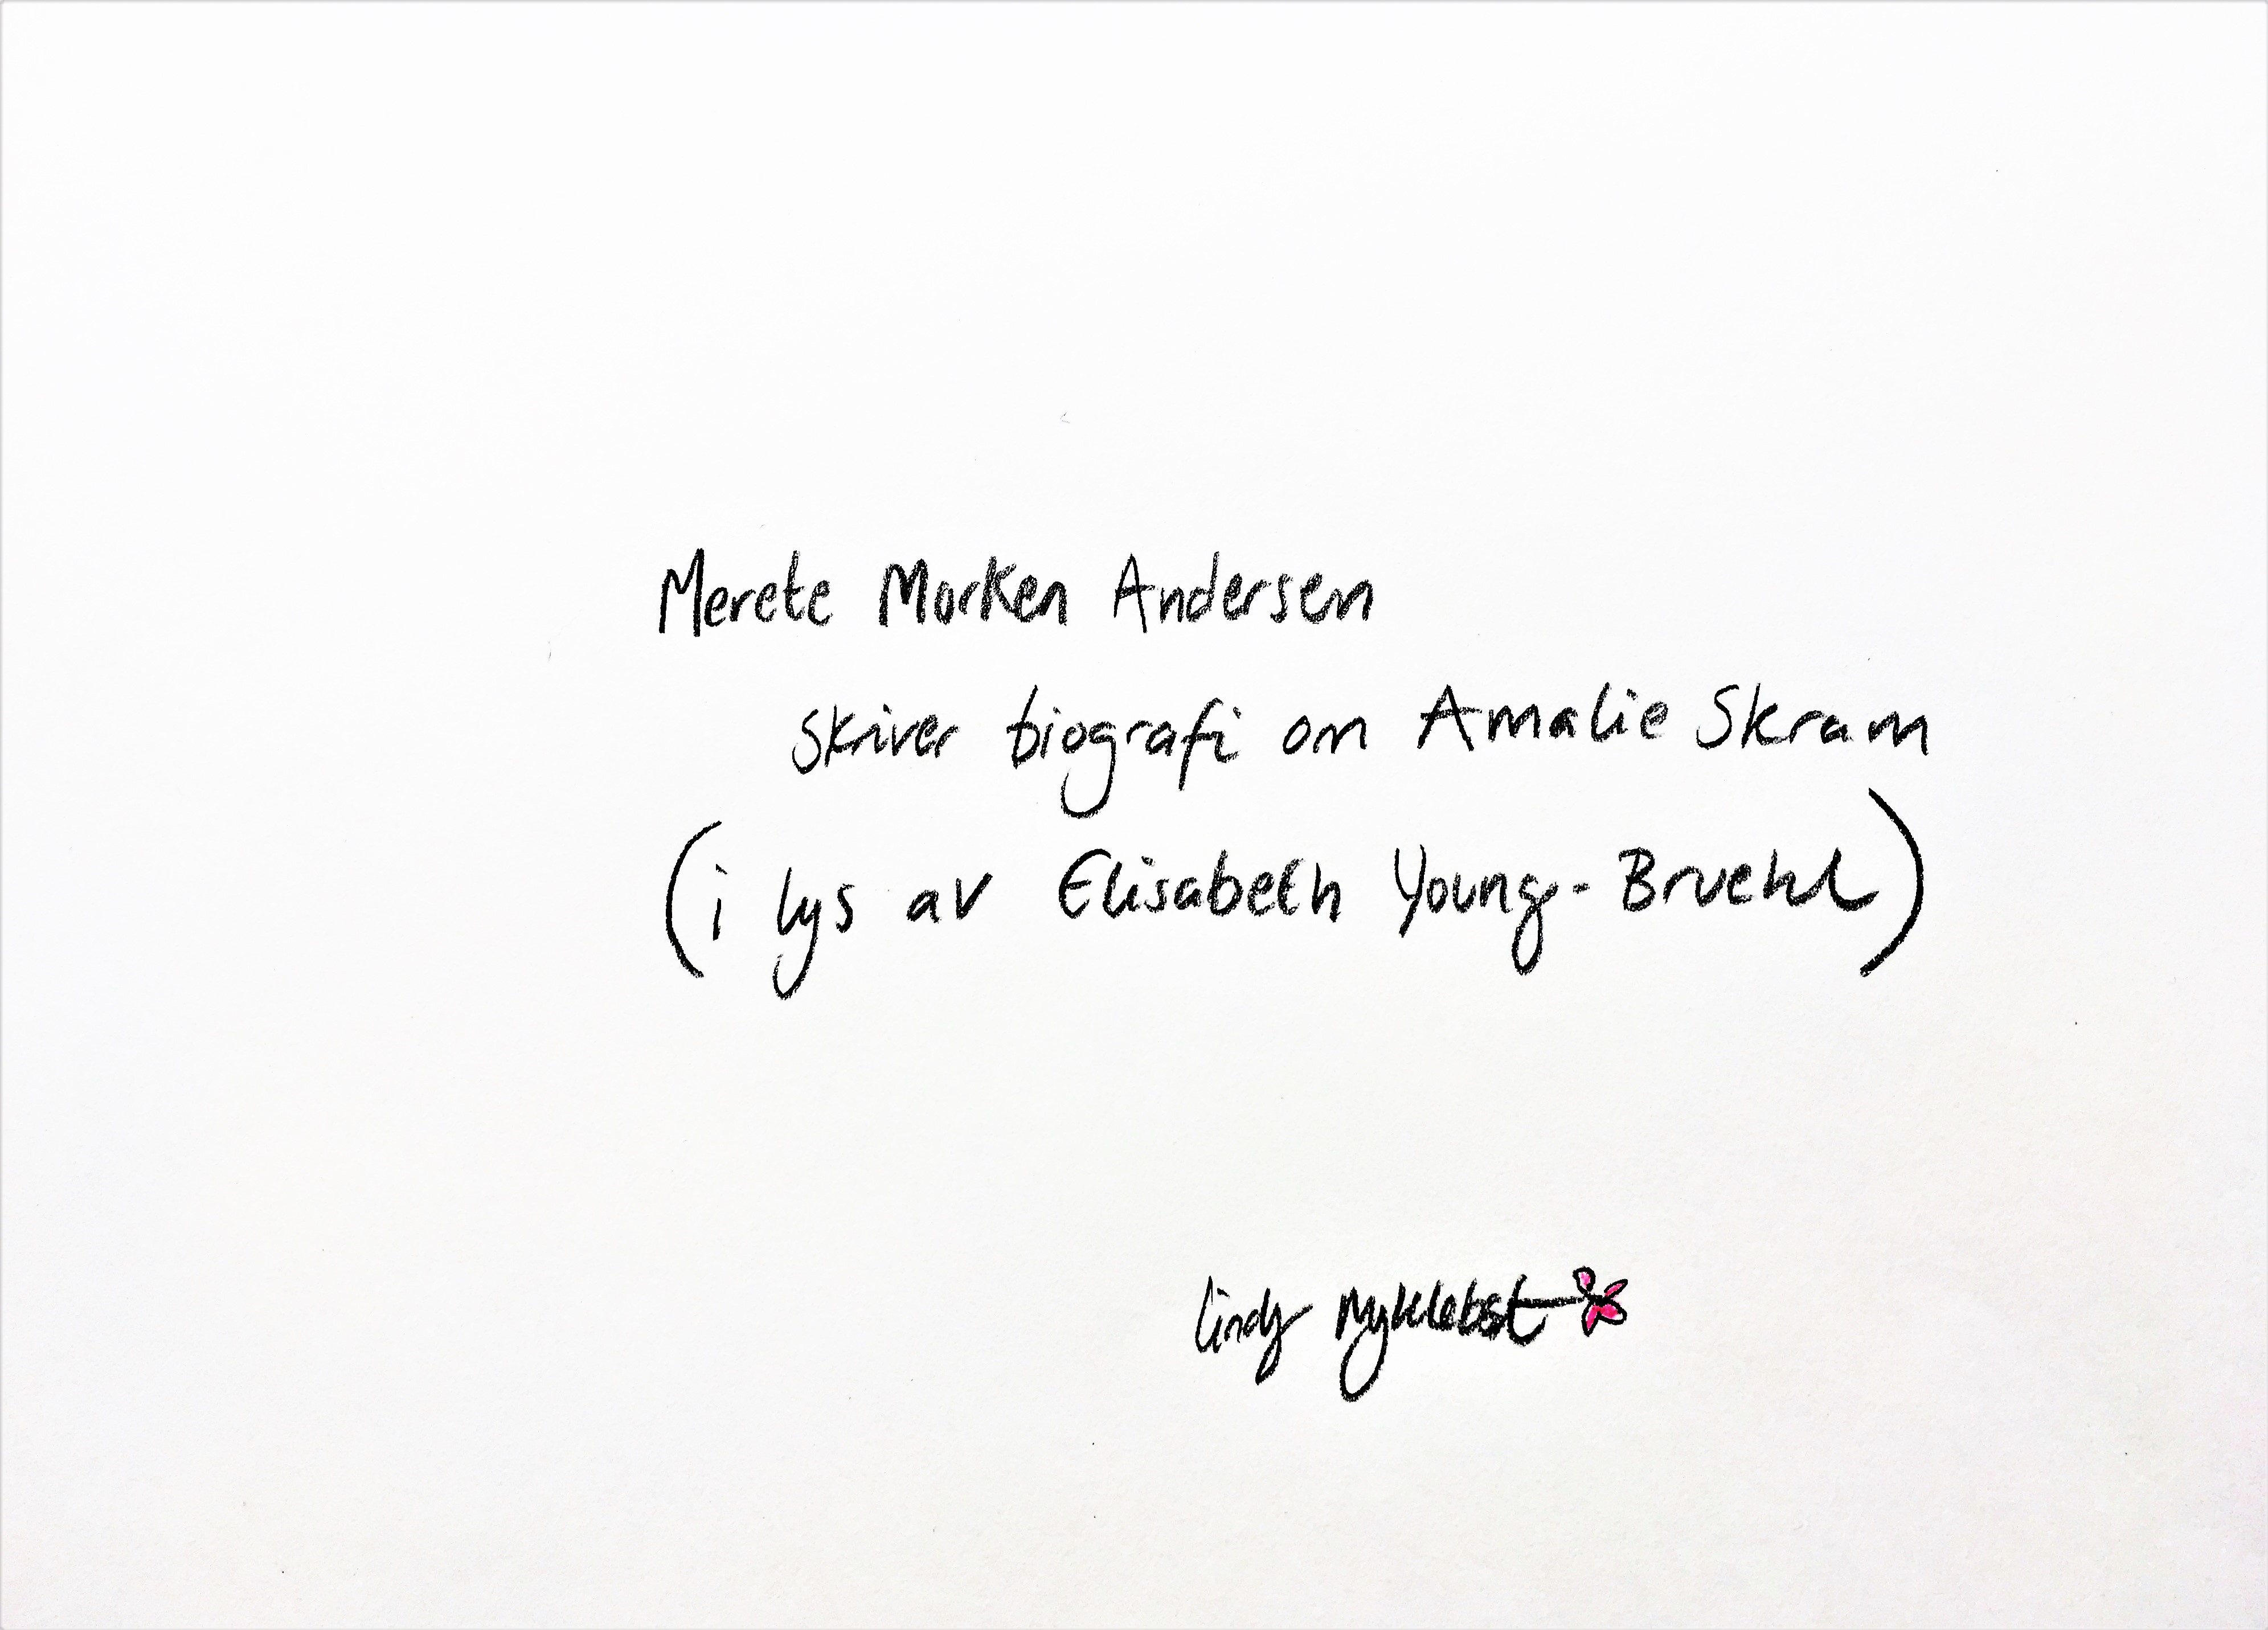 Merete Morken Andersen
skriver biografi om Amalie Skram
(i lys av Elisabeth Young-Bruehl)
lindy Myklebst